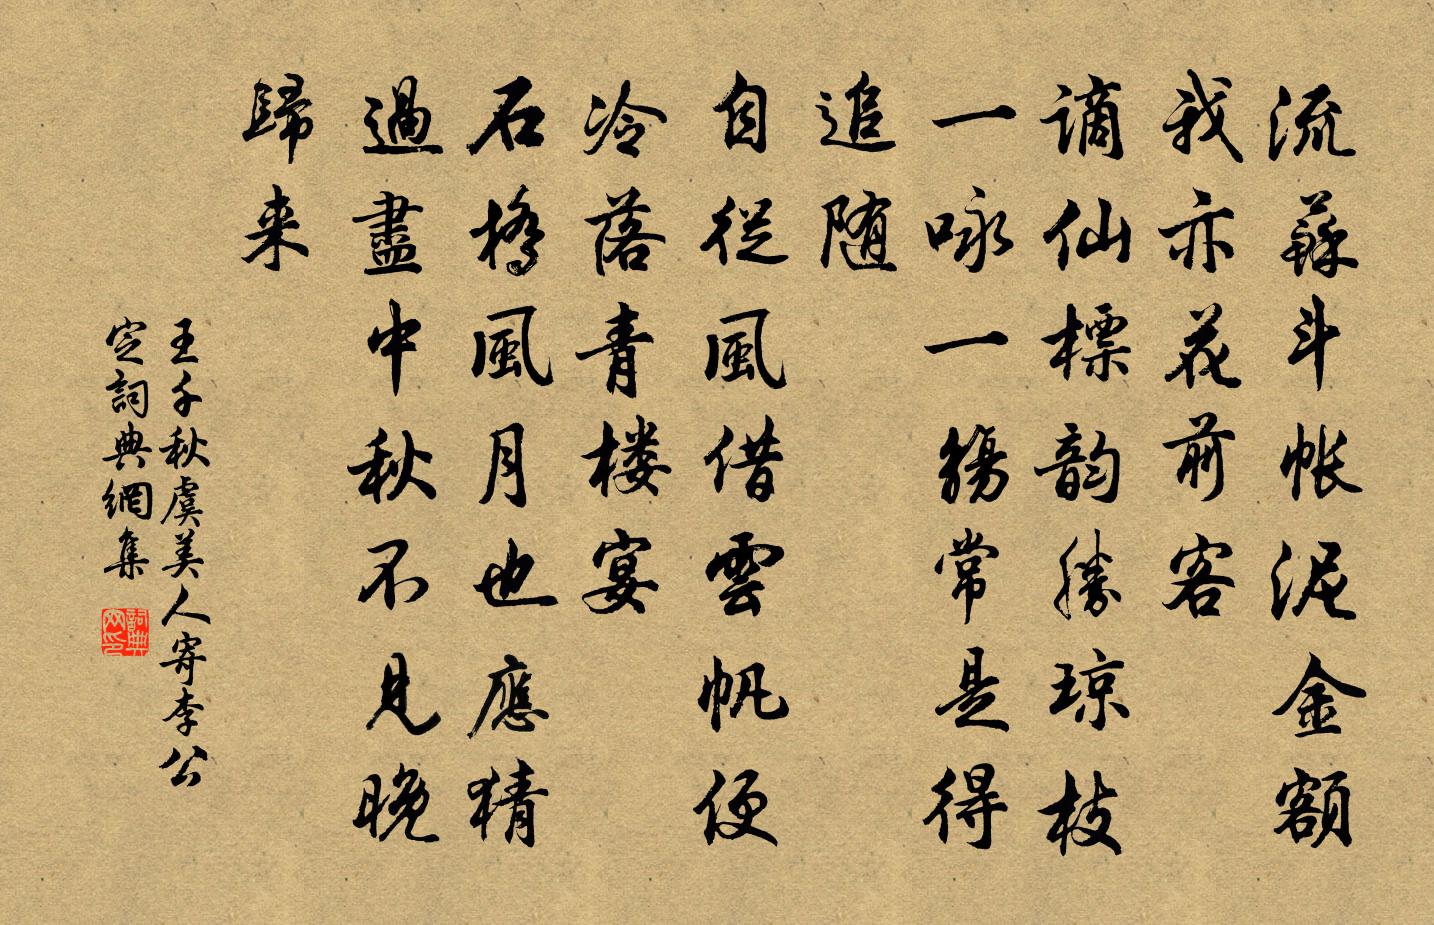 流蘇斗帳泥金額
我亦花前客
謫仙標韵勝琼枝
一咏一觴常是得
追随
自従風借雲帆便
冷落青楼宴
石橋風月也應猜
過盡中秋不見晚
歸来
王千秋虞美人寄李公
定詞典網集
詞典网印